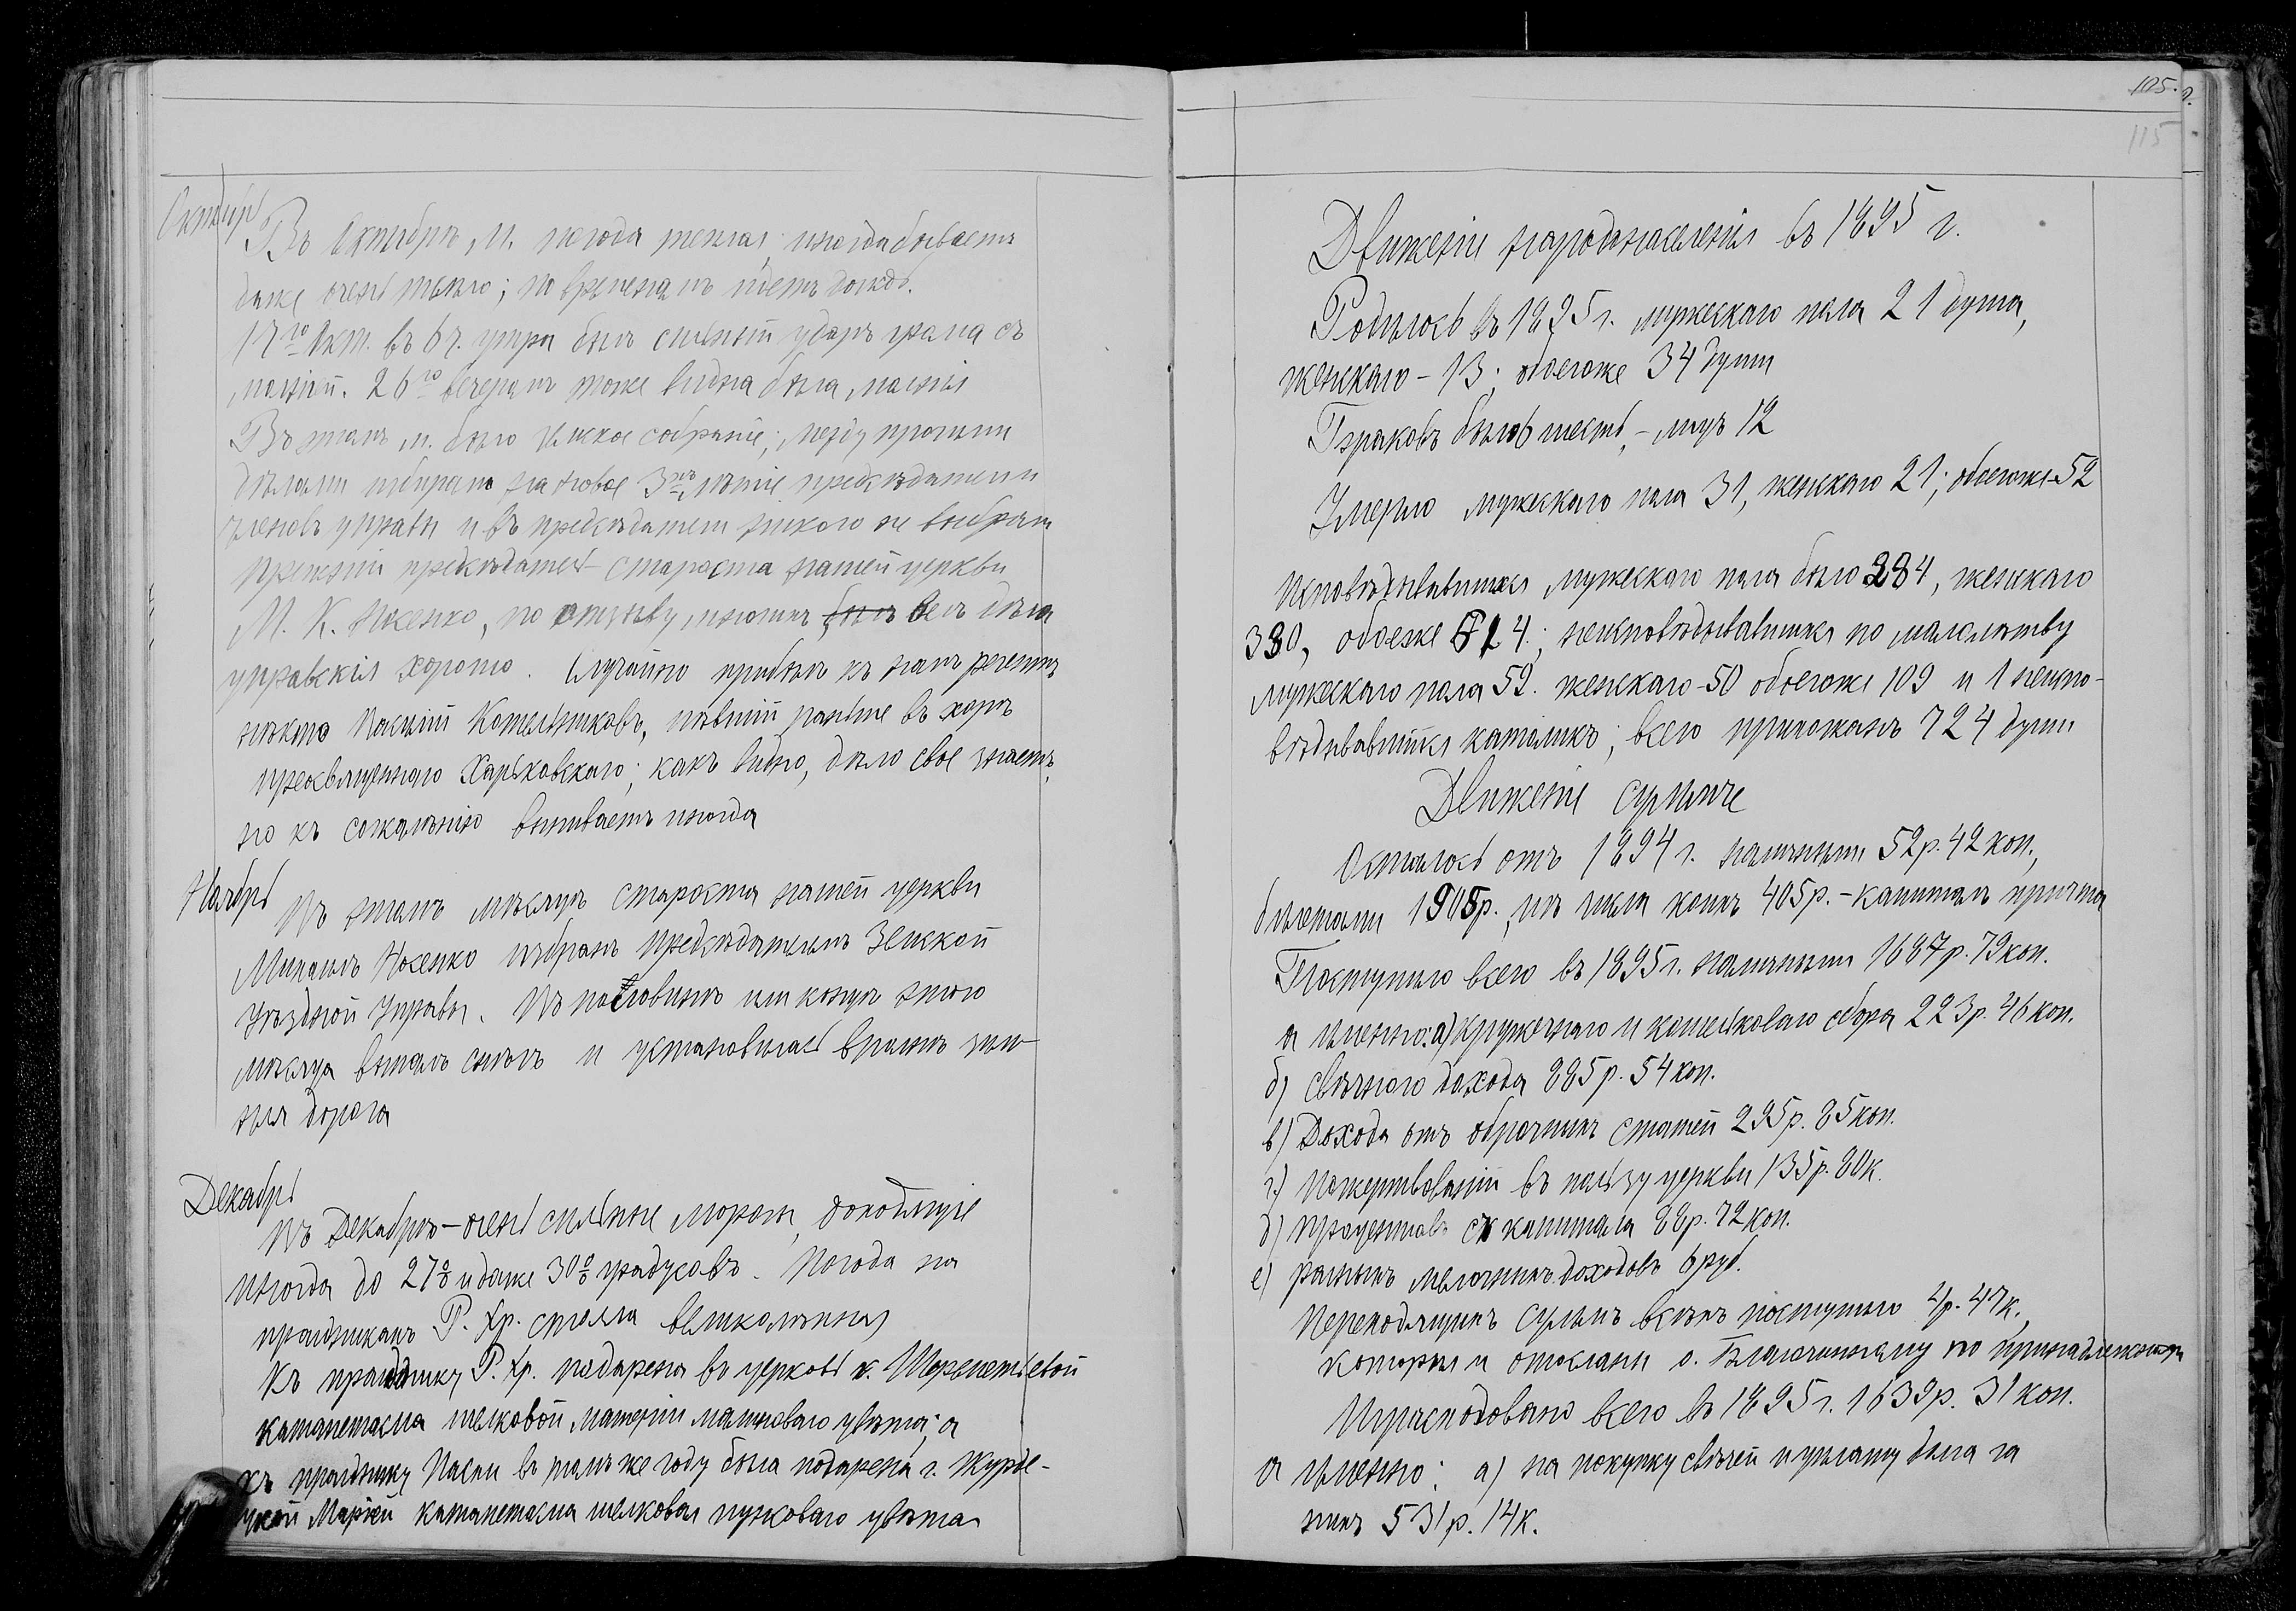 Октябрь
Въ Октябрѣ м. погода теплая, иногда бываетъ
даже очень тепло; по временамъ идетъ дождь.
17го Окт. въ 6 ч. утра былъ сильный ударъ грома съ
молніей. 26го вечеромъ тоже видна была молнія
Въ этомъ м. было Земское собраніе; между прочими
дѣлами избирали на новое 3хъ лѣтіе предсѣдателя и
членовъ управы и въ предсѣдатели никого не выбрали
Прежній предсѣдатель староста нашей церкви
М. К. Носенко, по отзыву многихъ, былъ велъ дѣла
управскія хорошо. Случайно прибылъ къ намъ регентъ
нѣкто Василій Котельниковъ, пѣвшій раньше въ хорѣ
преосвященнаго Харьковскаго; какъ видно, дѣло свое знаетъ,
но къ сожалѣнію выпиваетъ иногда
Ноябрь
Въ этомъ мѣсяцѣ староста нашей церкви
Михаилъ Носенко избранъ Предсѣдателемъ Земской
Уѣздной Управы. Въ половинѣ или концѣ этого
мѣсяца выпалъ снѣгъ и установилась зим-
няя дорога
Декабрь
Въ Декабрѣ – очень сильные морозы, доходящіе
иногда до 27° и даже 30° градусовъ. Погода на
праздникахъ Р. Хр. стояла великолѣпная
Къ празднику Р. Хр. подарена въ церковь к. Шереметьевой
катапетасма шелковой матеріи малиноваго цвѣта; а
къ празднику Пасхи въ томъ же году была подарена г. Журав-
Маріей катапетасма шелковая пунцоваго цвѣта
105.
115
Движеніе народонаселенія въ 1895 г.
Родилось въ 1895 г. мужескаго пола 21 душа,
женскаго – 13; обоегоже 34 души
Браковъ было 6 шесть, – лицъ 12
Умерло мужескаго пола 31, женскаго 21; обоегоже 52
Исповѣдывавшихся мужескаго пола было 284, женскаго
330, обоеже 614.; неисповѣдывавшихся по малолѣтству
мужескаго пола 59. женскаго – 50 обоегоже 109 и 1 неиспо-
вѣдывавшійся католикъ; всего прихожанъ 724 души
Движеніе суммъ
Осталось отъ 1894 г. наличными 52 р. 42 коп.,
билетами 1905 р., изъ числа коихъ 405 р. – капиталъ причта
Поступило всего въ 1895 г. наличными 1687 р. 79 коп.
а именно: а) Кружечнаго и кошельковаго сбора 223 р. 46 коп.
б) свѣчного дохода 885 р. 54 коп.
в) Дохода отъ оброчныхъ статей 295 р. 85 коп.
г) Пожертвованій въ пользу церкви 135 р. 80 к.
д) Процентовъ съ капитала 88 р. 72 коп.
е) разныхъ мелочныхъ доходовъ 6 руб.
Переходящихъ суммъ всѣхъ поступило 4 р. 47 к.
которыя и отосланы о. Благочинному по принадлежности
Израсходовано всего въ 1895 г. 1639 р. 31 коп.
а именно: а) на покупку свѣчей и уплату долга за
нихъ 531 р. 14 к.